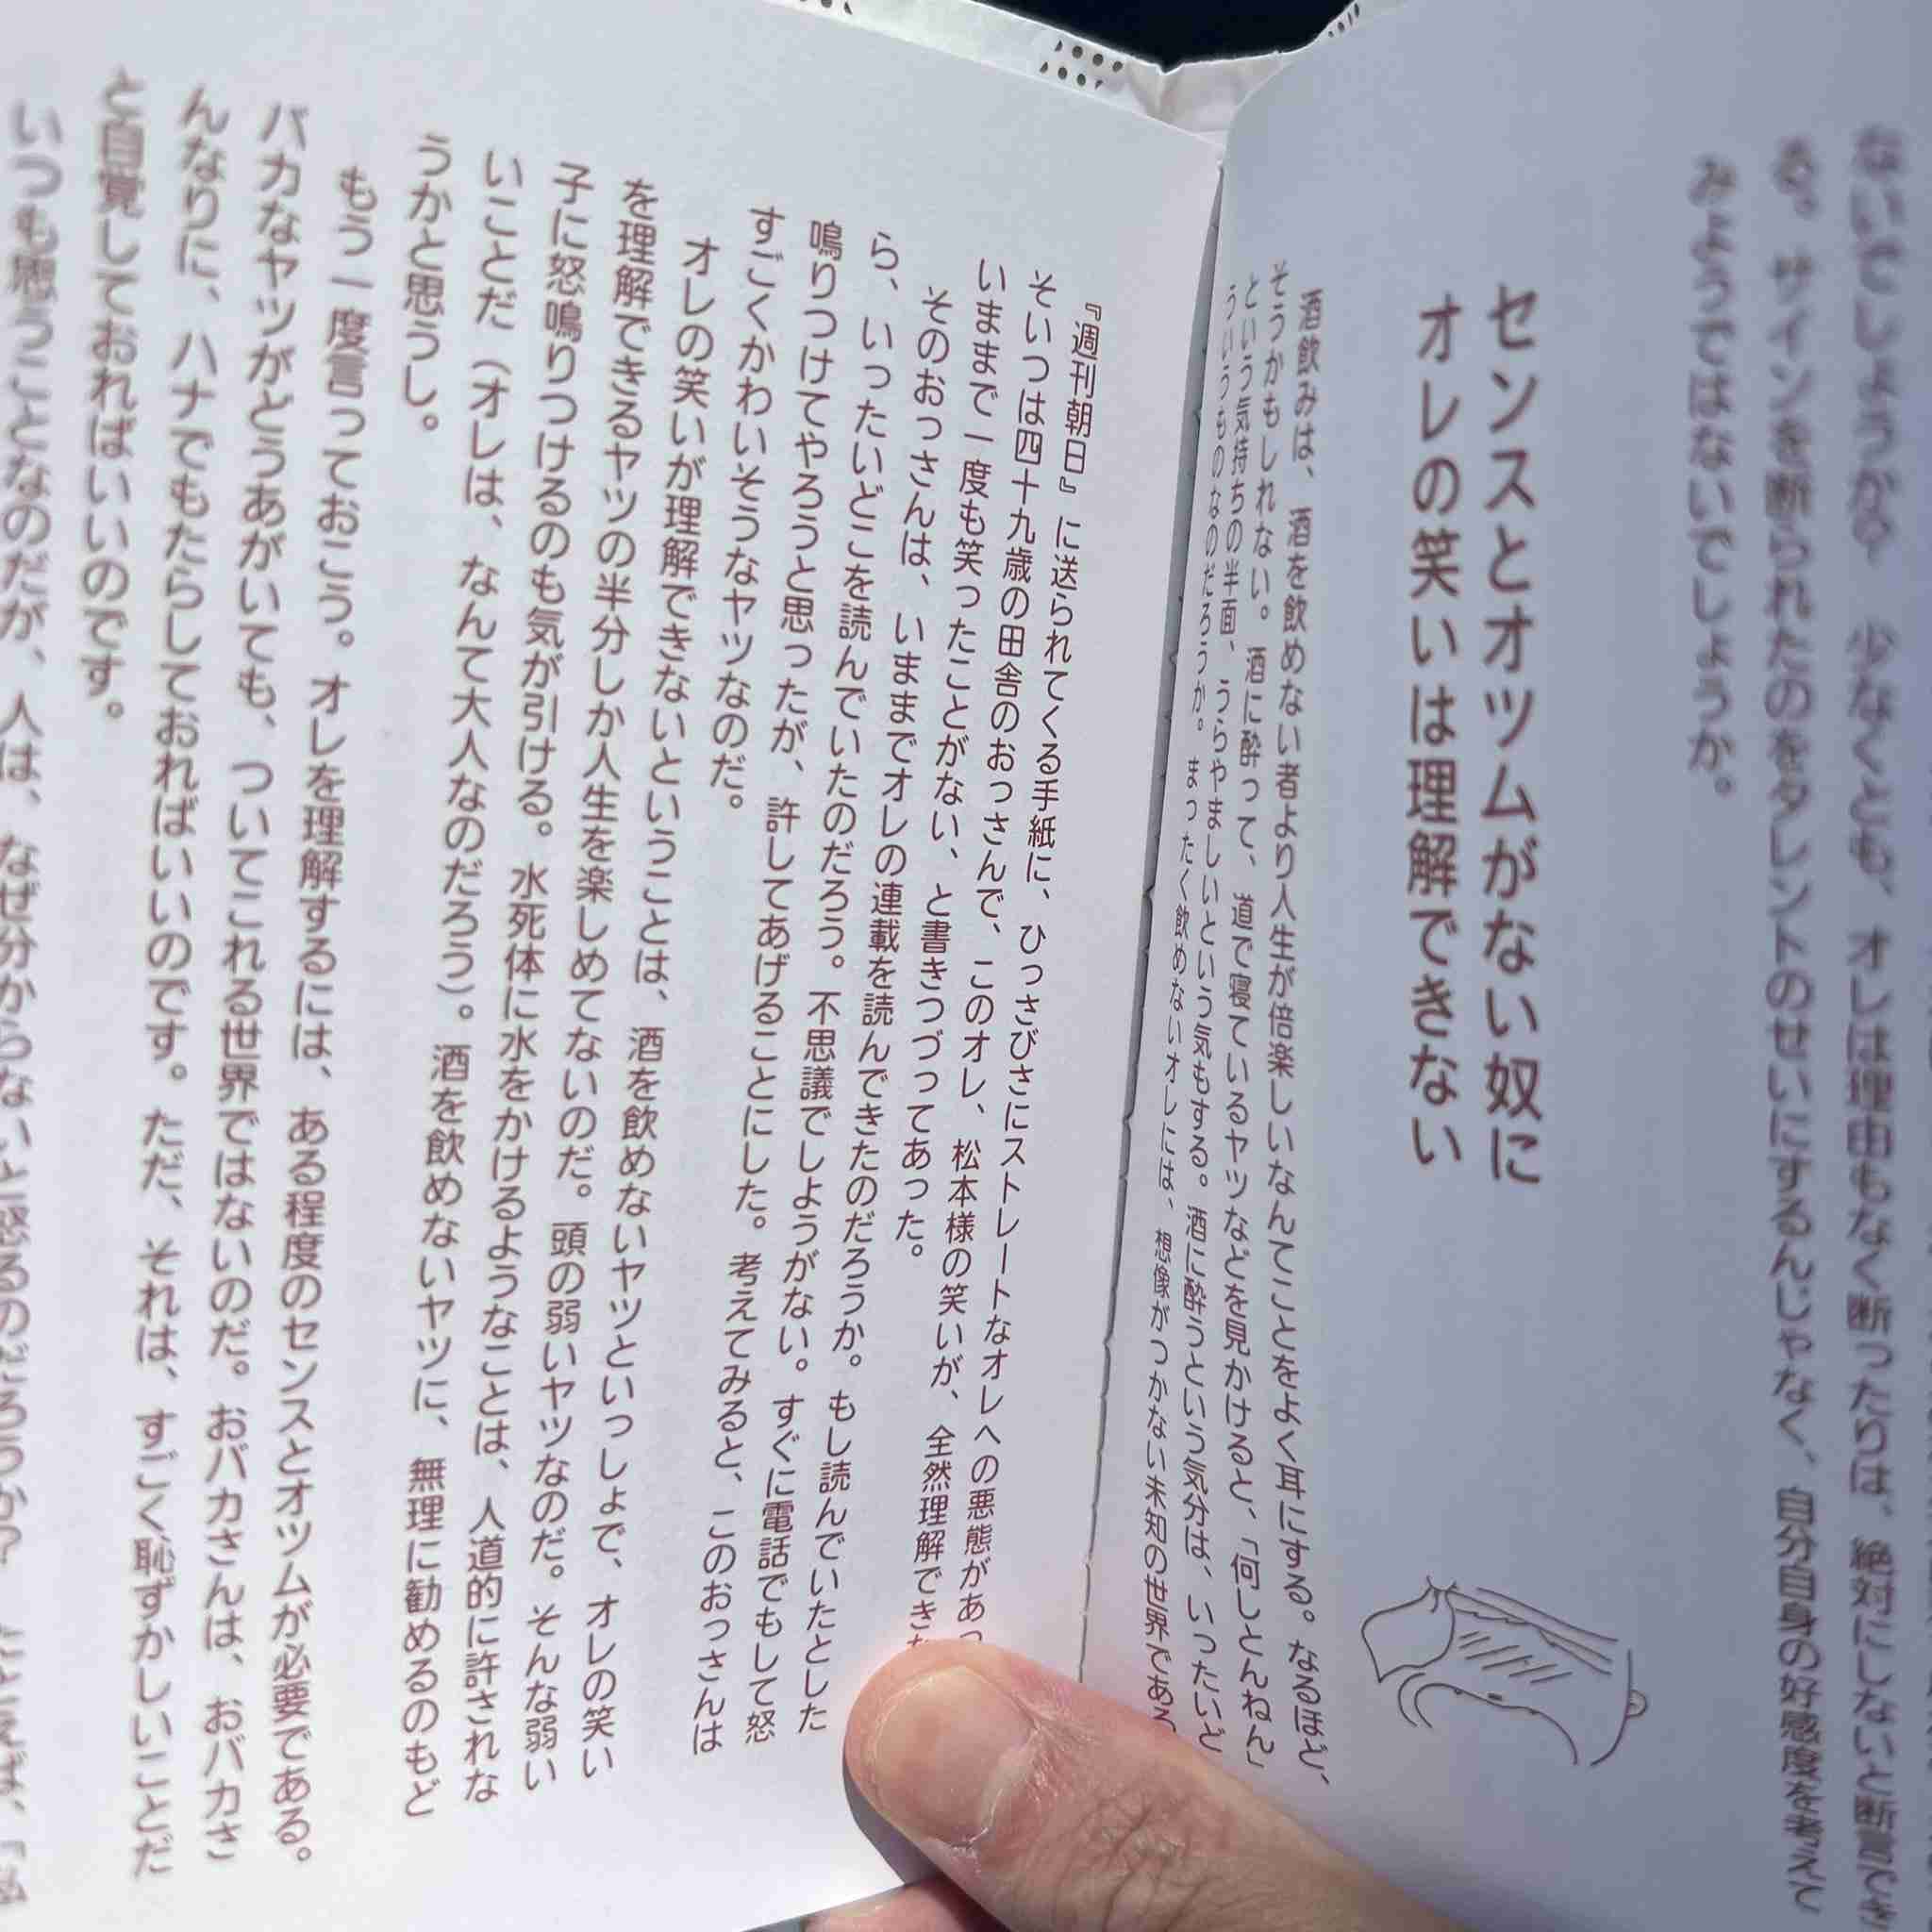 ないでしょうか？　少なくとも、オレは理由もなく断ったりは、絶対にしないと断言でき
る。サインを断られたのをタレントのせいにするんじゃなく、自分自身の好感度を考えて
みようではないでしょうか。
センスとオツムがない奴に
オレの笑いは理解できない
酒飲みは、酒を飲めない者より人生が倍楽しいなんてことをよく耳にする。なるほど、
そうかもしれない。酒に酔って、道で寝ているヤツなどを見かけると、「何しとんねん」
という気持ちの半面、うらやましいという気もする。酒に酔うという気分は、いったいど
ういうものなのだろうか。まったく飲めないオレには、想像がつかない未知の世界である
『週刊朝日』に送られてくる手紙に、ひっさびさにストレートなオレへの悪態があっ
そいつは四十九歳の田舎のおっさんで、このオレ、松本様の笑いが、全然理解でき
いままで一度も笑ったことがない、と書きつづってあった。
そのおっさんは、いままでオレの連載を読んできたのだろうか。もし読んでいたとした
ら、いったいどこを読んでいたのだろう。不思議でしようがない。すぐに電話でもして怒
鳴りつけてやろうと思ったが、許してあげることにした。考えてみると、このおっさんは
すごくかわいそうなヤツなのだ。
オレの笑いが理解できないということは、酒を飲めないヤツといっしょで、オレの笑い
を理解できるヤツの半分しか人生を楽しめてないのだ。頭の弱いヤツなのだ。そんな弱い
子に怒鳴りつけるのも気が引ける。水死体に水をかけるようなことは、人道的に許されな
いことだ（オレは、なんて大人なのだろう）。酒を飲めないヤツに、無理に勧めるのもど
うかと思うし。
もう一度言っておこう。オレを理解するには、ある程度のセンスとオツムが必要である。
バカなヤツがどうあがいても、ついてこれる世界ではないのだ。おバカさんは、おバカさ
んなりに、ハナでもたらしておればいいのです。ただ、それは、すごく恥ずかしいことだ
と自覚しておればいいのです。
いつも思うことなのだが、人は、なぜ分からないと怒るのだろうか？　たとえば、「私